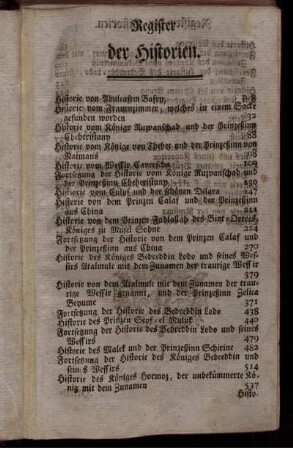 Register
der Historien.
Historie von Abulcasem Basry,
Historie vom Frauenzimmer, welches in einem Sacke
gefunden worden 32
Historie vom Könige Ruzvanschad und der Prinzeßinn
Cheheristany 88
Historie vom Könige von Thebet und der Prinzeßinn von
Naimans
Historie vom Wessir Caverscha
Fortsetzung der Historie vom Könige Ruzvanschad und
der Prinzeßinn Cheheristany
Historie vom Culuf und der schönen Dilara 147
Historie von dem Prinzen Calaf und der Prinzeßinn
aus China 211
Historie von dem Prinzen Fadlallah des Bins-Ortoes,
Königes zu Musel Sohne 224
Fortsetzung der Historie von dem Prinzen Calaf und
der Prinzeßinn aus China 270
Historie des Königes Bedreddin Lodo und seines Wes-
sirs Atalmulc mit dem Zunamen der traurige Wessir
379
Historie von dem Atalmulc mit dem Zunamen der trau-
rige Wessir genannt, und der Prinzeßinn Zelica
Beyume 371
Fortsetzung der Historie des Bedreddin Lodo 438
Historie des Prinzen Seyf-el Muluk 440
Fortsetzung der Historie des Bedreddin Lodo und seines
Wessirs 479
Historie des Malek und der Prinzeßinn Schirine 482
Fortsetzung der Historie des Königes Bedreddin und
seines Wessirs 514
Historie des Königes Hormoz, der unbekümmerte Kö-
nig mit dem Zunamen 537
Histo-